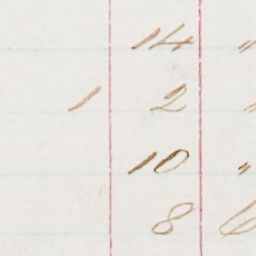 14 "
1 2
10 "
8 6